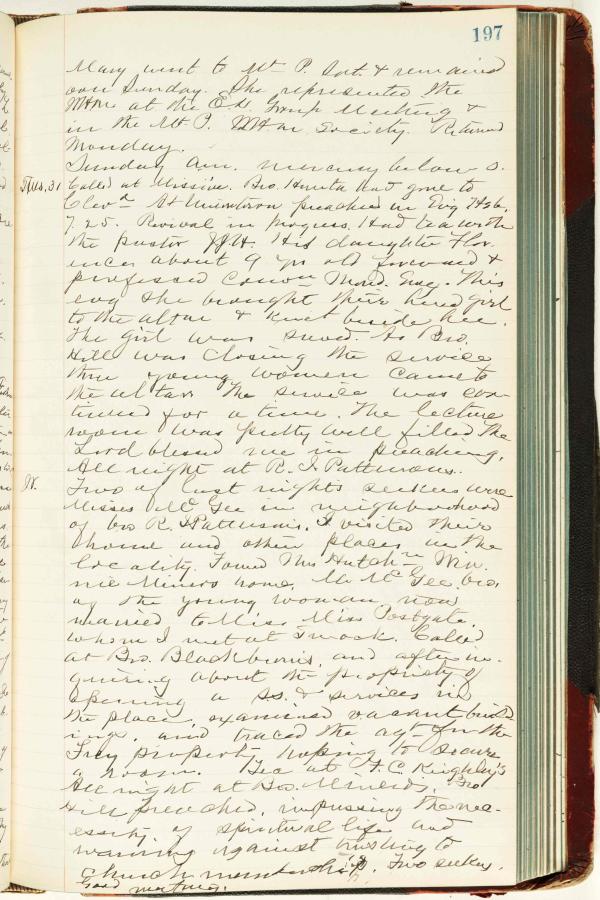 197
Mary went to Mt P. Sat. & remained
over Sunday. She represented the
at the Group Meeting &
in the Mt. P. Society. Returned
Monday.
Sunday a.m. mercury below 0.
Tues. 31 Called at Missive. Bro. had gone to
Clevd. At preached in Evg Heb.
7.25. Revival in progress. Had tea with
the pastor His daughter Flor-
ence about 9 yrs old forward &
professed Mond. Evg. This
evg she brought their hired girl
to the altar & knelt beside her.
The girl was saved. As Bro.
Hill was closing the service
three young women came to
the altar. The service was con-
tinued for a time. The lecture
room was pretty well filled. The
Lord blessed me in preaching.
All night at R. J. Patterson's.
W. Two of last nights seekers were
Misses McGee in neighborhood
of bro R. J. Patterson's. I visited their
home and other places in the
locality. Found Mrs Min-
nie home. Mr McGee, bro.
of the young women now
married to Miss Postgate,
whom I met at Called
at Bro. Blackburn's, and after in-
quiring about the propriety of
opening a SS. & services in
the place, examined vacant build-
ings, and traced the for the
Frey property, hoping to secure
a room. Tea at F. C. Keighley's
All night at Bro. Bro
Hill preached, impressing the nec-
essity of spiritual life and
warning against trusting to
church membership. Two seekers.
Good meeting.